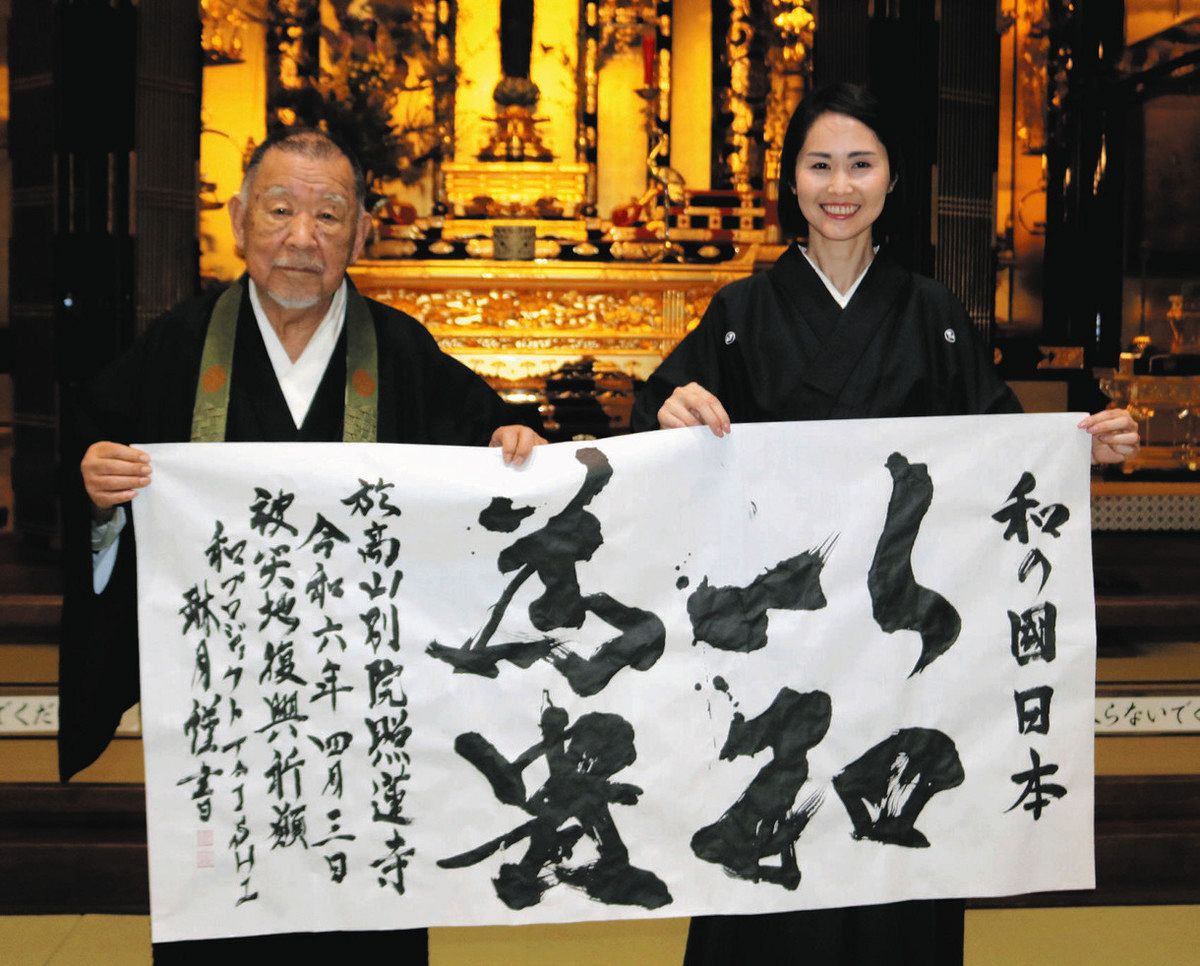 和の國日本
以和
為貴
於高山別院照蓮寺
令和六年四月三日
被災地復興祈願
和プロジェクトTAISHI
琳月謹書
でくだ
入らないでく